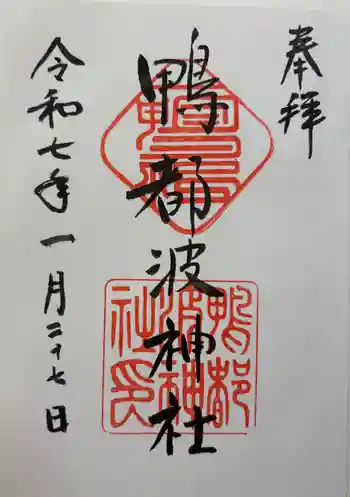 奉拝
鴨都波神社
令和七年一月二十七日
鴨都
波神
社印